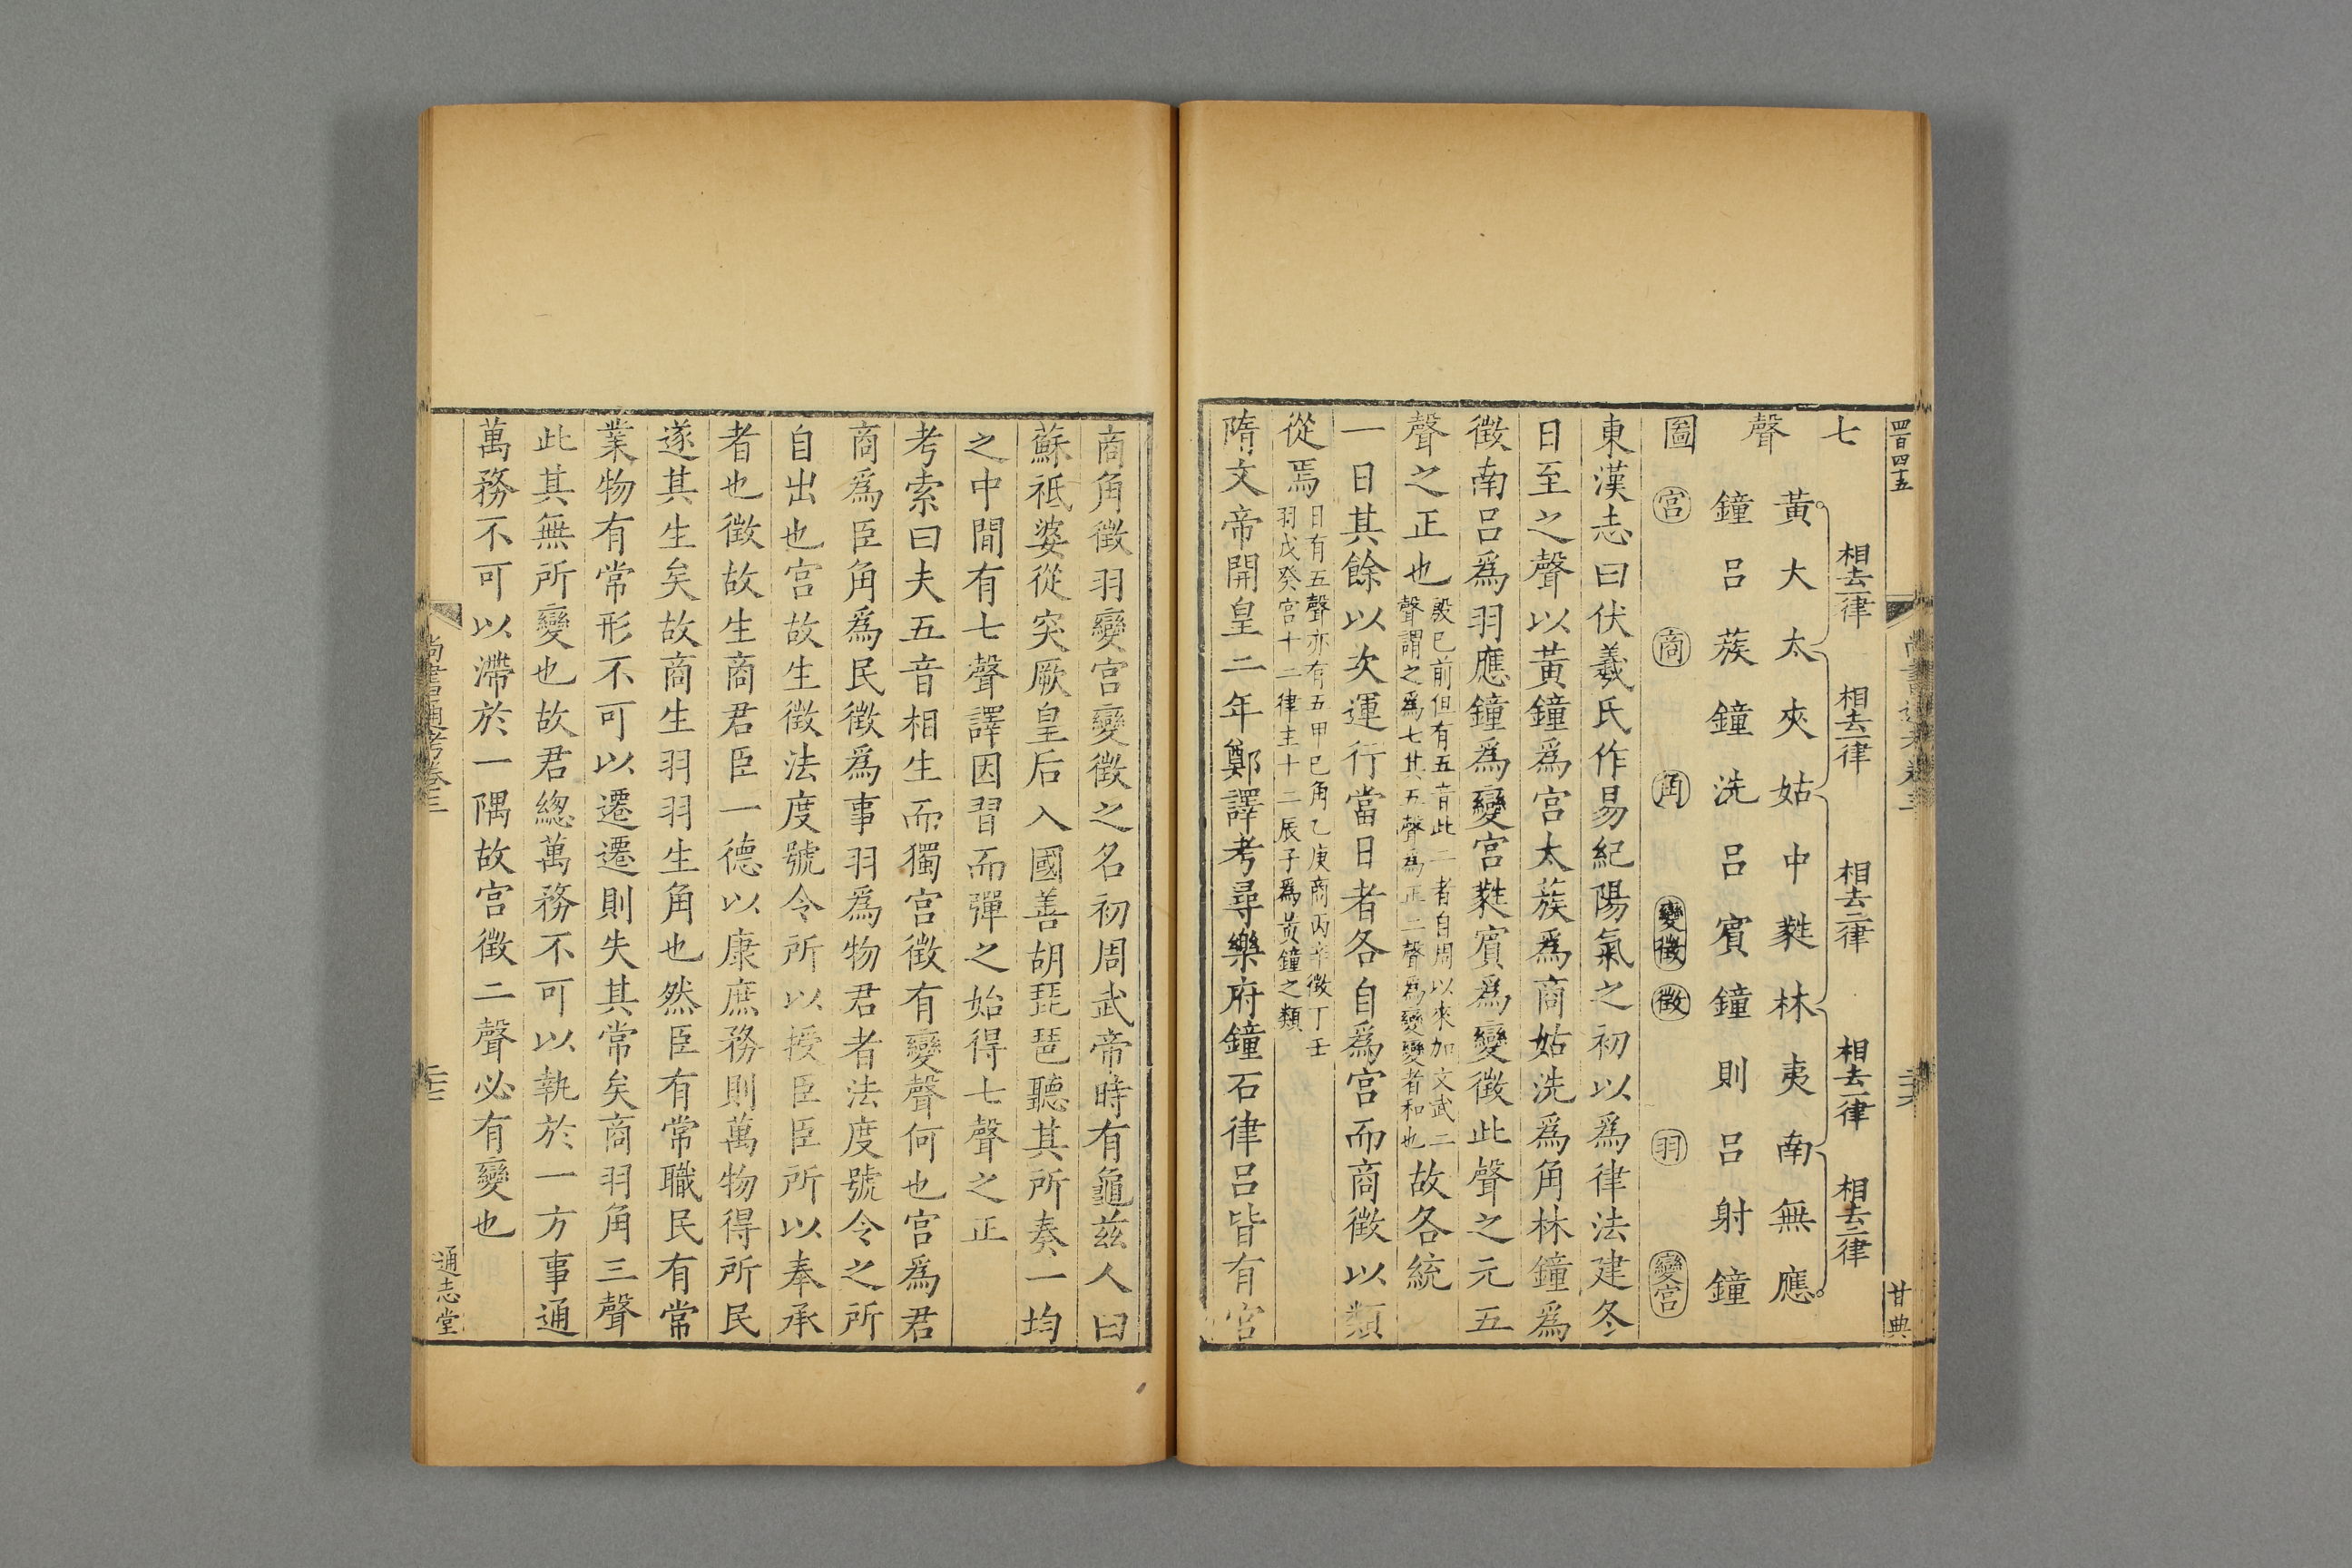 四百四十五
甘典
相去一律
相去一律
相去二律
相去一律
相去二律
七聲圖
黃大太夾姑中蕤林夷南無應
鐘呂蔟鐘洗呂賓鐘則呂射鐘
宮
商
角
變徵
徵
羽
變宮
東漢志曰伏羲氏作易紀陽氣之初以爲律法建冬
日至之聲以黃鐘爲宮太蔟爲商姑洗爲角林鐘爲
徵南呂爲羽應鐘爲變宮蕤賓爲變徵此聲之元五
聲之正也
殷已前但有五音此二者自周以來加文武二
聲謂之爲七其五聲爲正二聲爲變變者和也
故各統
一日其餘以次運行當日者各自爲宮而商徵以類
從焉
日有五聲亦有五甲已角乙庚商丙辛徵丁壬
羽戊癸宮十二律主十二辰子爲黃鐘之類
隋文帝開皇二年鄭譯考尋樂府鐘石律呂皆有宮
商角徵羽變宮變徵之名初周武帝時有龜茲人曰
蘇祗婆從突厥皇后入國善胡琵琶聽其所奏一均
之中間有七聲譯因習而彈之始得七聲之正
考索曰夫五音相生而獨宮徵有變聲何也宮爲君
商爲臣角爲民徵爲事羽爲物君者法度號令之所
自出也宮故生徵法度號令所以授臣臣所以奉承
者也徵故生商君臣一德以康庶務則萬物得所民
遂其生矣故商生羽羽生角也然臣有常職民有常
業物有常形不可以遷遷則失其常矣商羽角三聲
此其無所變也故君緫萬務不可以執於一方事通
萬務不可以滯於一隅故宮徵二聲必有變也
尚書通考卷三
通志堂